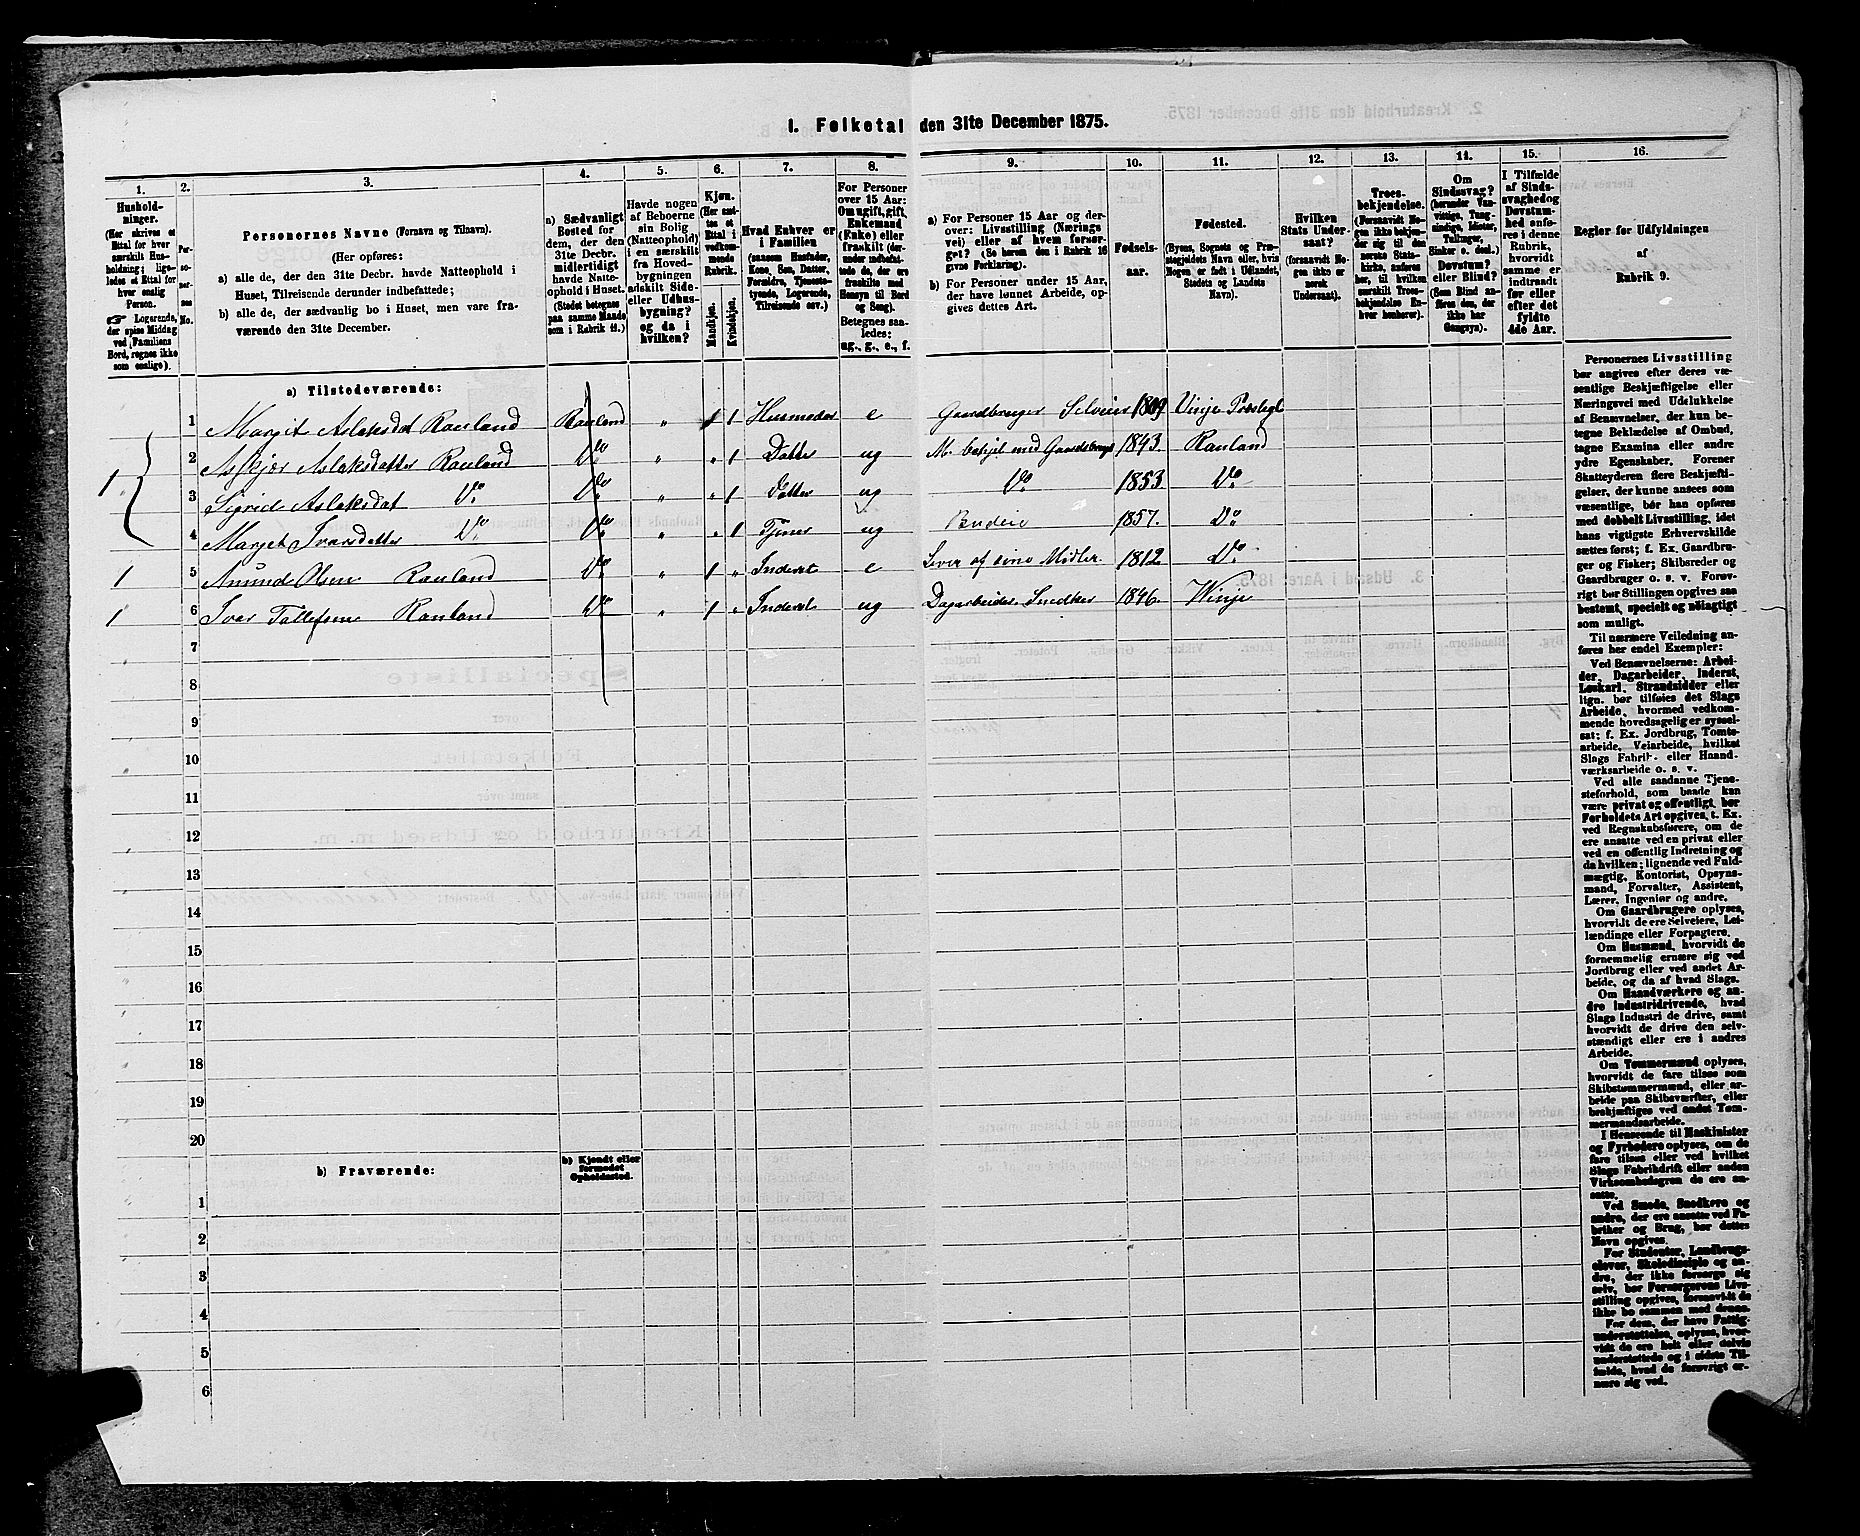 1. Folketal den 31te December 1875.
1. 2. 3. 4. 5. 6. 7. 8. 9. 10. 11. 12. 13. 14. 15. 16.
Hushold-
ninger.
(Her skrives et
Ettal for hver
særskilt Hus-
holdning; lige-
ledes et Ettal for
hver enslig
Person.
☞ Logerende,
der spise Middag
ved Familiens
Bord, regnes ikke
som enslige).
Per-
so-
ner-
nes
No.
Personernes Navne (Fornavn og Tilnavn).
(Her opføres:
a) alle de, der den 31te Decbr. havde Natteophold i
Huset, Tilreisende derunder indbefattede;
b) alle de, der sædvanlig bo i Huset, men vare fra-
værende den 31te December.
a) Sædvanligt
Bosted for
dem, der den
31te Decbr.
midlertidigt
havde Natte-
ophold i Huset.
(Stedet betegnes
paa samme Maade
som i Rubrik 11.)
Havde nogen
af Beboerne
sin Bolig
(Natteophold)
i en særskilt
fra Hoved-
bygningen
adskilt Side-
eller Udhus-
bygning?
og da i
hvilken?
Kjøn.
(Her sæt-
tes et
Ettal i
vedkom-
mende
Rubrik.
Mandkjøn.
Kvindekjøn.
Hvad Enhver er
i Familien
(saasom Husfader,
Kone, Søn, Datter,
Forældre, Tjeneste-
tyende, Logerende,
Tilreisende osv.)
For Personer
over 15 Aar:
Om ugift, gift,
Enkemand
(Enke) eller
fraskilt (der-
under indbefat-
tede de, der ere
fraskilte med
Hensyn til Bord
og Seng).
Betegnes saa-
ledes:
ug., g., e., f.
a) For Personer 15 Aar og der-
over: Livsstilling (Nærings
vei) eller af hvem forsør-
get? (Se herom den i Rubrik 16
givne Forklaring).
b) For Personer under 15 Aar,
der have lønnet Arbeide, op-
gives dettes Art.
Fødsels-
aar.
Fødested.
(Byens, Sognets og Præ-
stegjeldets Navn eller, hvis
Nogen er født i Udlandet,
Stedets og Landets
Navn).
Hvilken
Stats Under-
saat?
(forsaavidt No-
gen ikke er
norsk
Undersaat).
Troes-
bekjendelse.
(Forsaavidt No-
gen ikke bekjen-
der sig til den
norske Stats-
kirke, anføres
her, til hvilken
særskilt Troes-
bekjendelse En-
hver henhører).
Om
Sindssvag?
(herunder Van-
vittige, Tung-
sindige, Idioter,
Tullinger,
Sinker o. desl.)
Døvstum?
eller Blind?
(Som Blind an-
føres den, der
ikke har
Gangsyn).
I Tilfælde
af Sinds-
svaghed og
Døvstum-
hed anfø-
res i denne
Rubrik,
hvorvidt
samme er
indtraadt
før eller
efter det
fyldte
4de Aar.
Regler for Udfyldningen
af
Rubrik 9.
a) Tilstedeværende:
1 Margit Aslaksdat Rauland Rauland " 1 Husmoder e Gaardbruger Selveier 1809 Vinje Præstegl
1 2 Askjær Aslaksdatter Rauland Do " " 1 Datter ug 1843. Rauland
3 Sigrid Aslaksdat Do Do " " 1 Datter ug Do 1853. Do
4 Margit Ivarsdatter Do Do " " 1 Tjener ug Budeie 1857. Do
1 5 Amund Olsen Rauland Do " 1 " Inderst e Lever af sine Midler. 1812 Do
1 6 Ivar Tallefsene Rauland Do " 1 " Inderst ug Dagarbeider Snedker 1846. Winje
7
8
9
10
11
12
13
14
15
16
17
18
19
20
b) Fraværende: b) Kjendt eller
formodet
Opholdssted.
1
2
3
4
5
6
Personernes Livsstilling
bør angives efter deres væ-
sentlige Beskjæftigelse eller
Næringsvei med Udelukkelse
af Benævnelser, der kun be-
tegne Beklædelse af Ombud,
tagne Examina eller andre
ydre Egenskaber. Forener
Skatteyderen flere Beskjæfti-
gelser, der kunne ansees som
væsentlige, bør han opføres
med dobbelt Livsstilling, idet
hans vigtigste Erhvervskilde
sættes først; f. Ex. Gaardbru-
ger og Fisker; Skibsreder og
Gaardbruger o. s. v. Forøv-
rigt bør Stillingen opgives saa
bestemt, specielt og nøiagtigt
som muligt.
Til nærmere Veiledning an-
føres her endel Exempler:
Ved Benævnelserne: Arbei-
der, Dagarbeider, Inderst,
Løskarl, Strandsidder eller
lign. bør tilføies det Slags
Arbeide, hvormed vedkom-
mende hovedsagelig er syssel-
sat; f. Ex. Jordbrug, Tomte-
arbeide, Veiarbeide, hvilket
Slags Fabrik- eller Haand-
værksarbeide o. s. v.
Ved alle saadanne Tjene-
steforhold, som baade kan
være privat og offentligt, bør
Forholdets Art opgives, t. Ex.
ved Regnskabsførere, om de
ere ansatte ved en privat eller
ved en offentlig Indretning og
da hvilken; lignende ved Fuld-
mægtig, Kontorist, Opsyns-
mand, Forvalter, Assistent,
Lærer, Ingeniør og andre.
Om Gaardbrugere oplyses,
hvorvidt de ere Selveiere, Lei-
lændinge eller Forpagtere.
Om Husmænd, hvorvidt de
fornemmelig ernære sig ved
Jordbrug eller ved andet Ar-
beide, og da af hvad Slags.
Om Haandværkere og an-
dre Industridrivende, hvad
Slags Industri de drive, samt
hvorvidt de drive den selv-
stændigt eller ere i andres
Arbeide.
Om Tømmermænd oplyses,
hvorvidt de fare tilsøs som
Skibstømmermænd, eller ar-
beide paa Skibsværfter, eller
beskjæftiges ved andet Tøm-
mermandsarbeide.
I Henseende til Maskinister
og Fyrbødere oplyses, om de
fare tilsøs eller ved hvilket
Slags Fabrikdrift eller anden
Virksomhedsgren de ere an-
satte.
Ved Smede, Snedkere og
andre, der ere ansatte ved Fa-
briker og Brug, bør dettes
Navn opgives.
For Studenter, Landbrugs-
elever, Skoledisciple og an-
dre, der ikke forsørge sig
selv, bør Forsørgerens Livs-
stilling opgives, forsaavidt de
ikke bo sammen med denne.
For dem, der have Fattig-
understøttelse, oplyses, hvor-
vidt de ere helt eller delvis
understøttede og i sidste Til-
fælde, hvad de forøvrigt er-
nære sig ved.